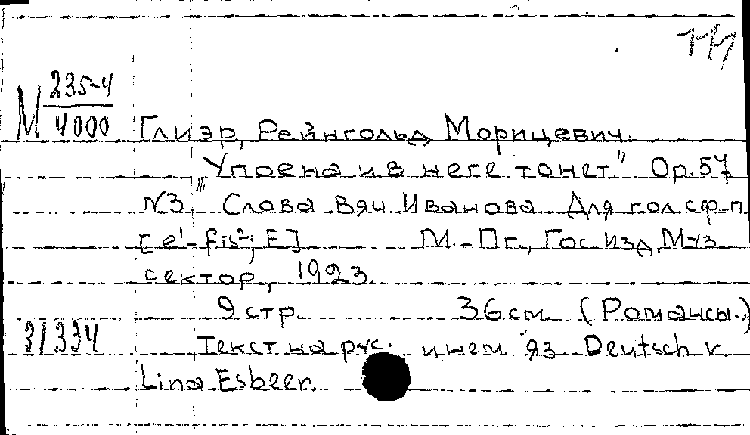 М 235-4
4000
Глиэр, Рейнгольд Морицевич.
"Упоена и в неге тонет" Ор. 57
N3. Слова Вяч Иванова Для гол с ф-п
[e'-fis²; E] М.-Пг., Гос Изд Муз
сектор, 1923
9 стр 36 см (Романсы.)
31334
Текст на рус. и нем яз Deutsch v.
Lina Esbeer.